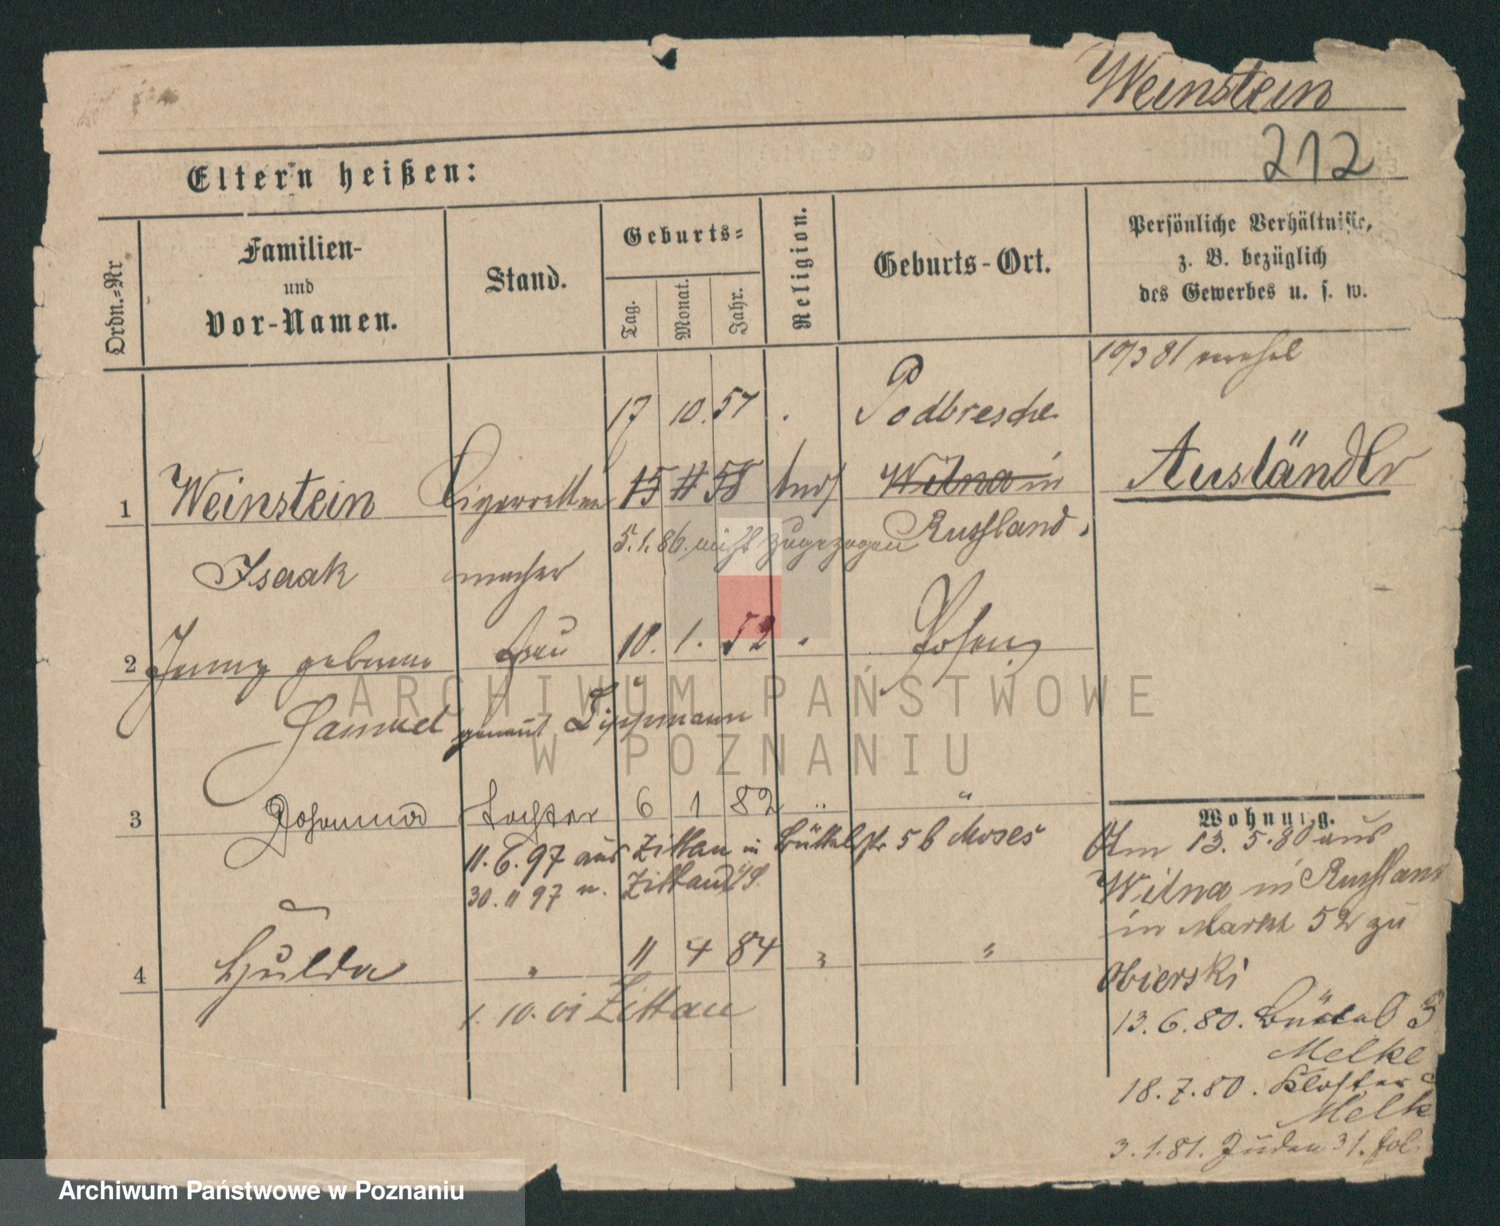 Weinstein
212
Eltern heißen:
Ordn.-Nr
Familien-
und
Vor-Namen.
Stand.
Geburts-
Tag.
Monat.
Jahr.
Religion.
Geburts-Ort.
Persönliche Verhältnisse,
z. B. bezüglich
des Gewerbes u. s. w.
10/3 81
17 10. 57 Podbresche
1 Weinstein Cigaretten 15 11 58 Wilna in Ausländer
5.1.86. nicht zugezogen Russland.
Isaak macher
2 Jenny geborene Frau 10. 1. 52 Posen
Samuel genannt Lippmann
3 Johanna Tochter 6 1 82 " "
11. 6. 97 aus Zittau in Büttelstr 5 b Moses
30. 11 97 n. Zittau
4 Hulda " 11 4 84 "
1. 10. 01 Zittau
Wohnung.
Am 13. 5. 80 aus
Wilna in Russland
in Markt 52 zu
Obierski
13. 6. 80. Büttel 3
Melke
18. 7. 80. Kloster
Melk
3. 1. 81. Juden 31.
ARCHIWUM PAŃSTWOWE
W POZNANIU
Archiwum Państwowe w Poznaniu